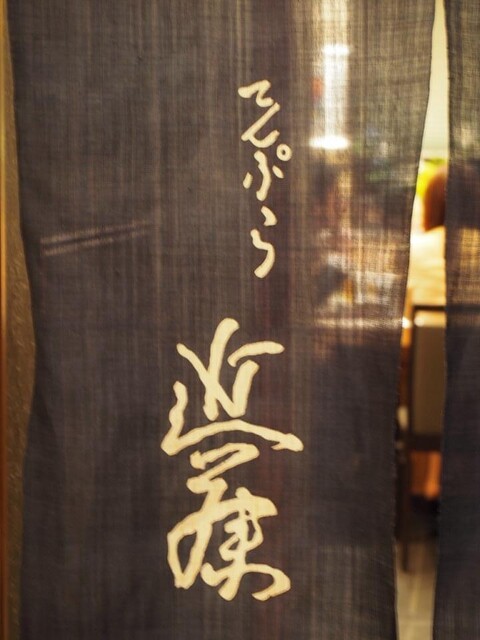 てんぷら
近藤